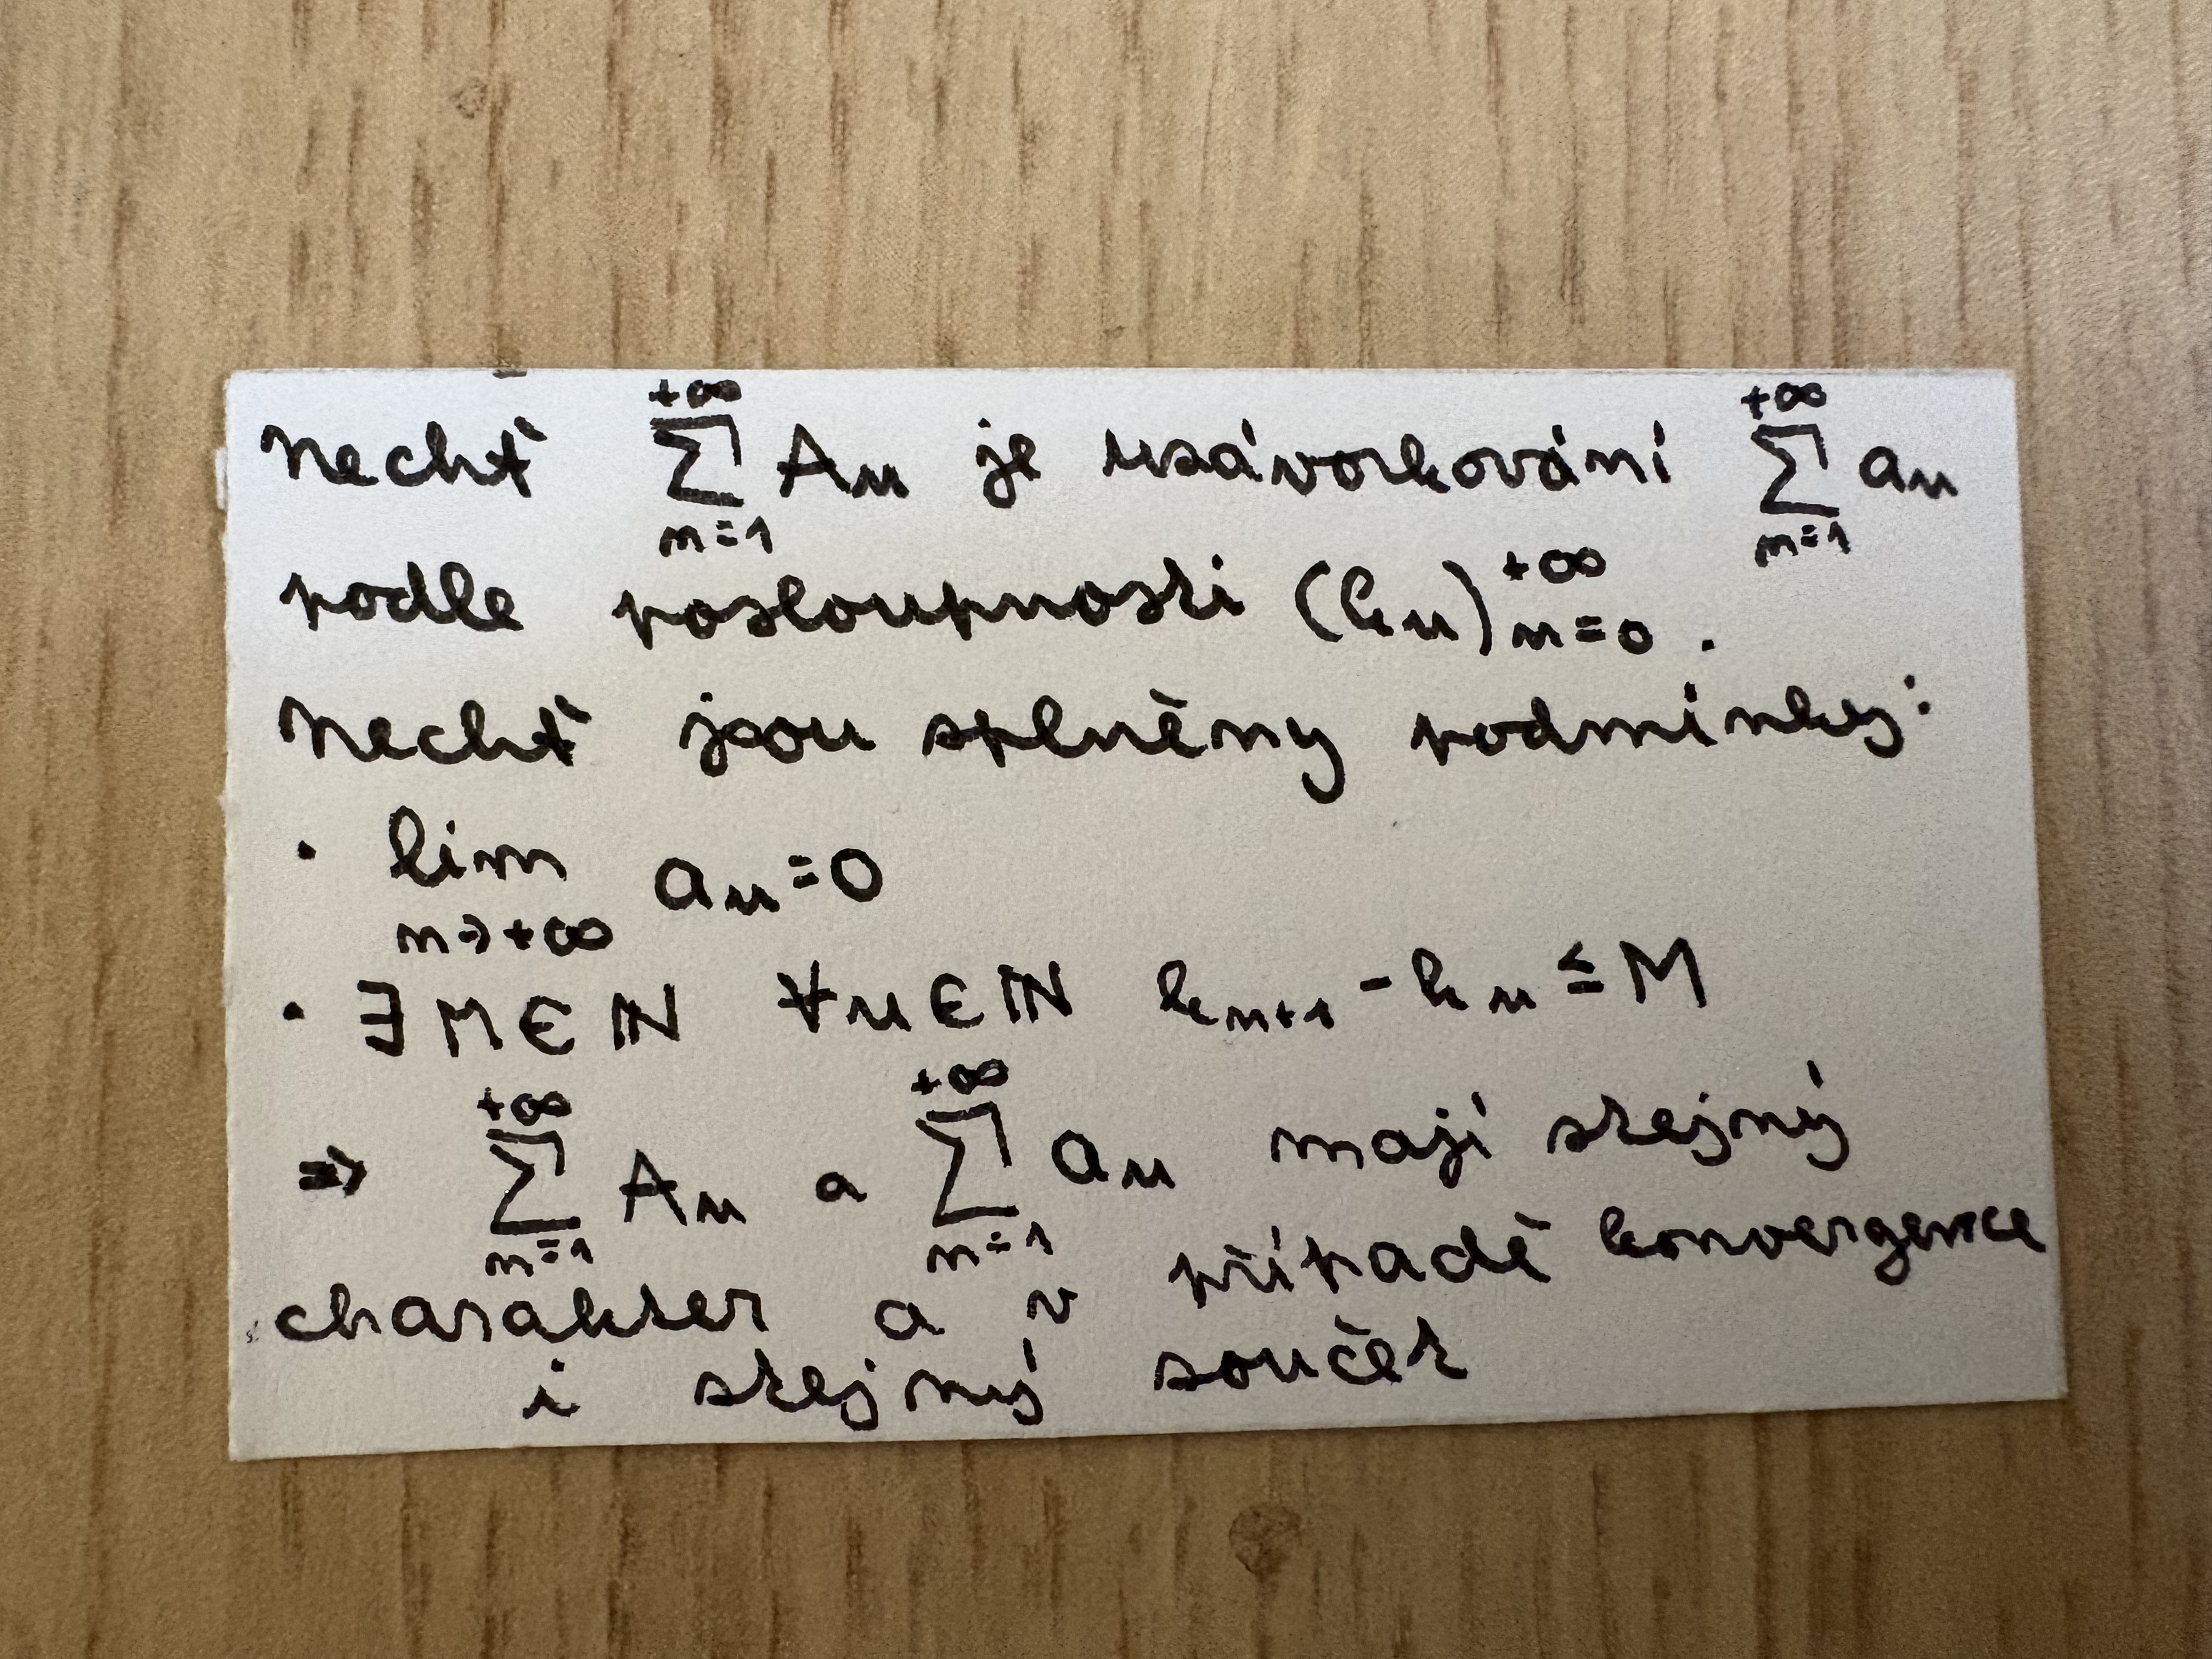 Nechť $\sum_{n=1}^{+\infty} A_n$ je uzávorkování $\sum_{n=1}^{+\infty} a_n$
podle posloupnosti $(k_n)_{n=0}^{+\infty}$.
Nechť jsou splněny podmínky:
· $\lim_{n \to +\infty} a_n = 0$
· $\exists M \in \mathbb{N} \quad \forall n \in \mathbb{N} \quad k_{n+1} - k_n \leq M$
$\Rightarrow \sum_{n=1}^{+\infty} A_n$ a $\sum_{n=1}^{+\infty} a_n$ mají stejný
charakter a v případě konvergence
i stejný součet